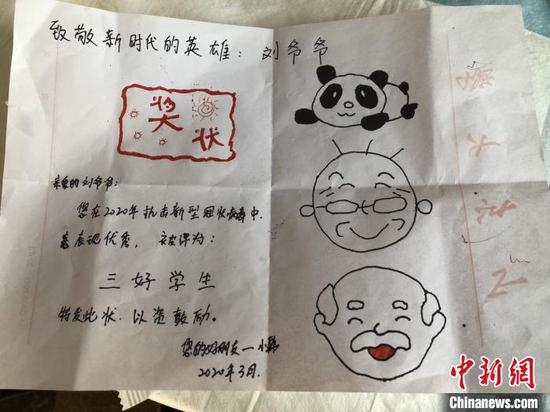 致敬新时代的英雄：刘爷爷
奖状
亲爱的刘爷爷：
您在2020年抗击新型冠状病毒中，
表现优秀，被评为：
三好学生
特发此状，以资鼓励。
您的好朋友—小
2020年3月.
中新网
Chinanews.com